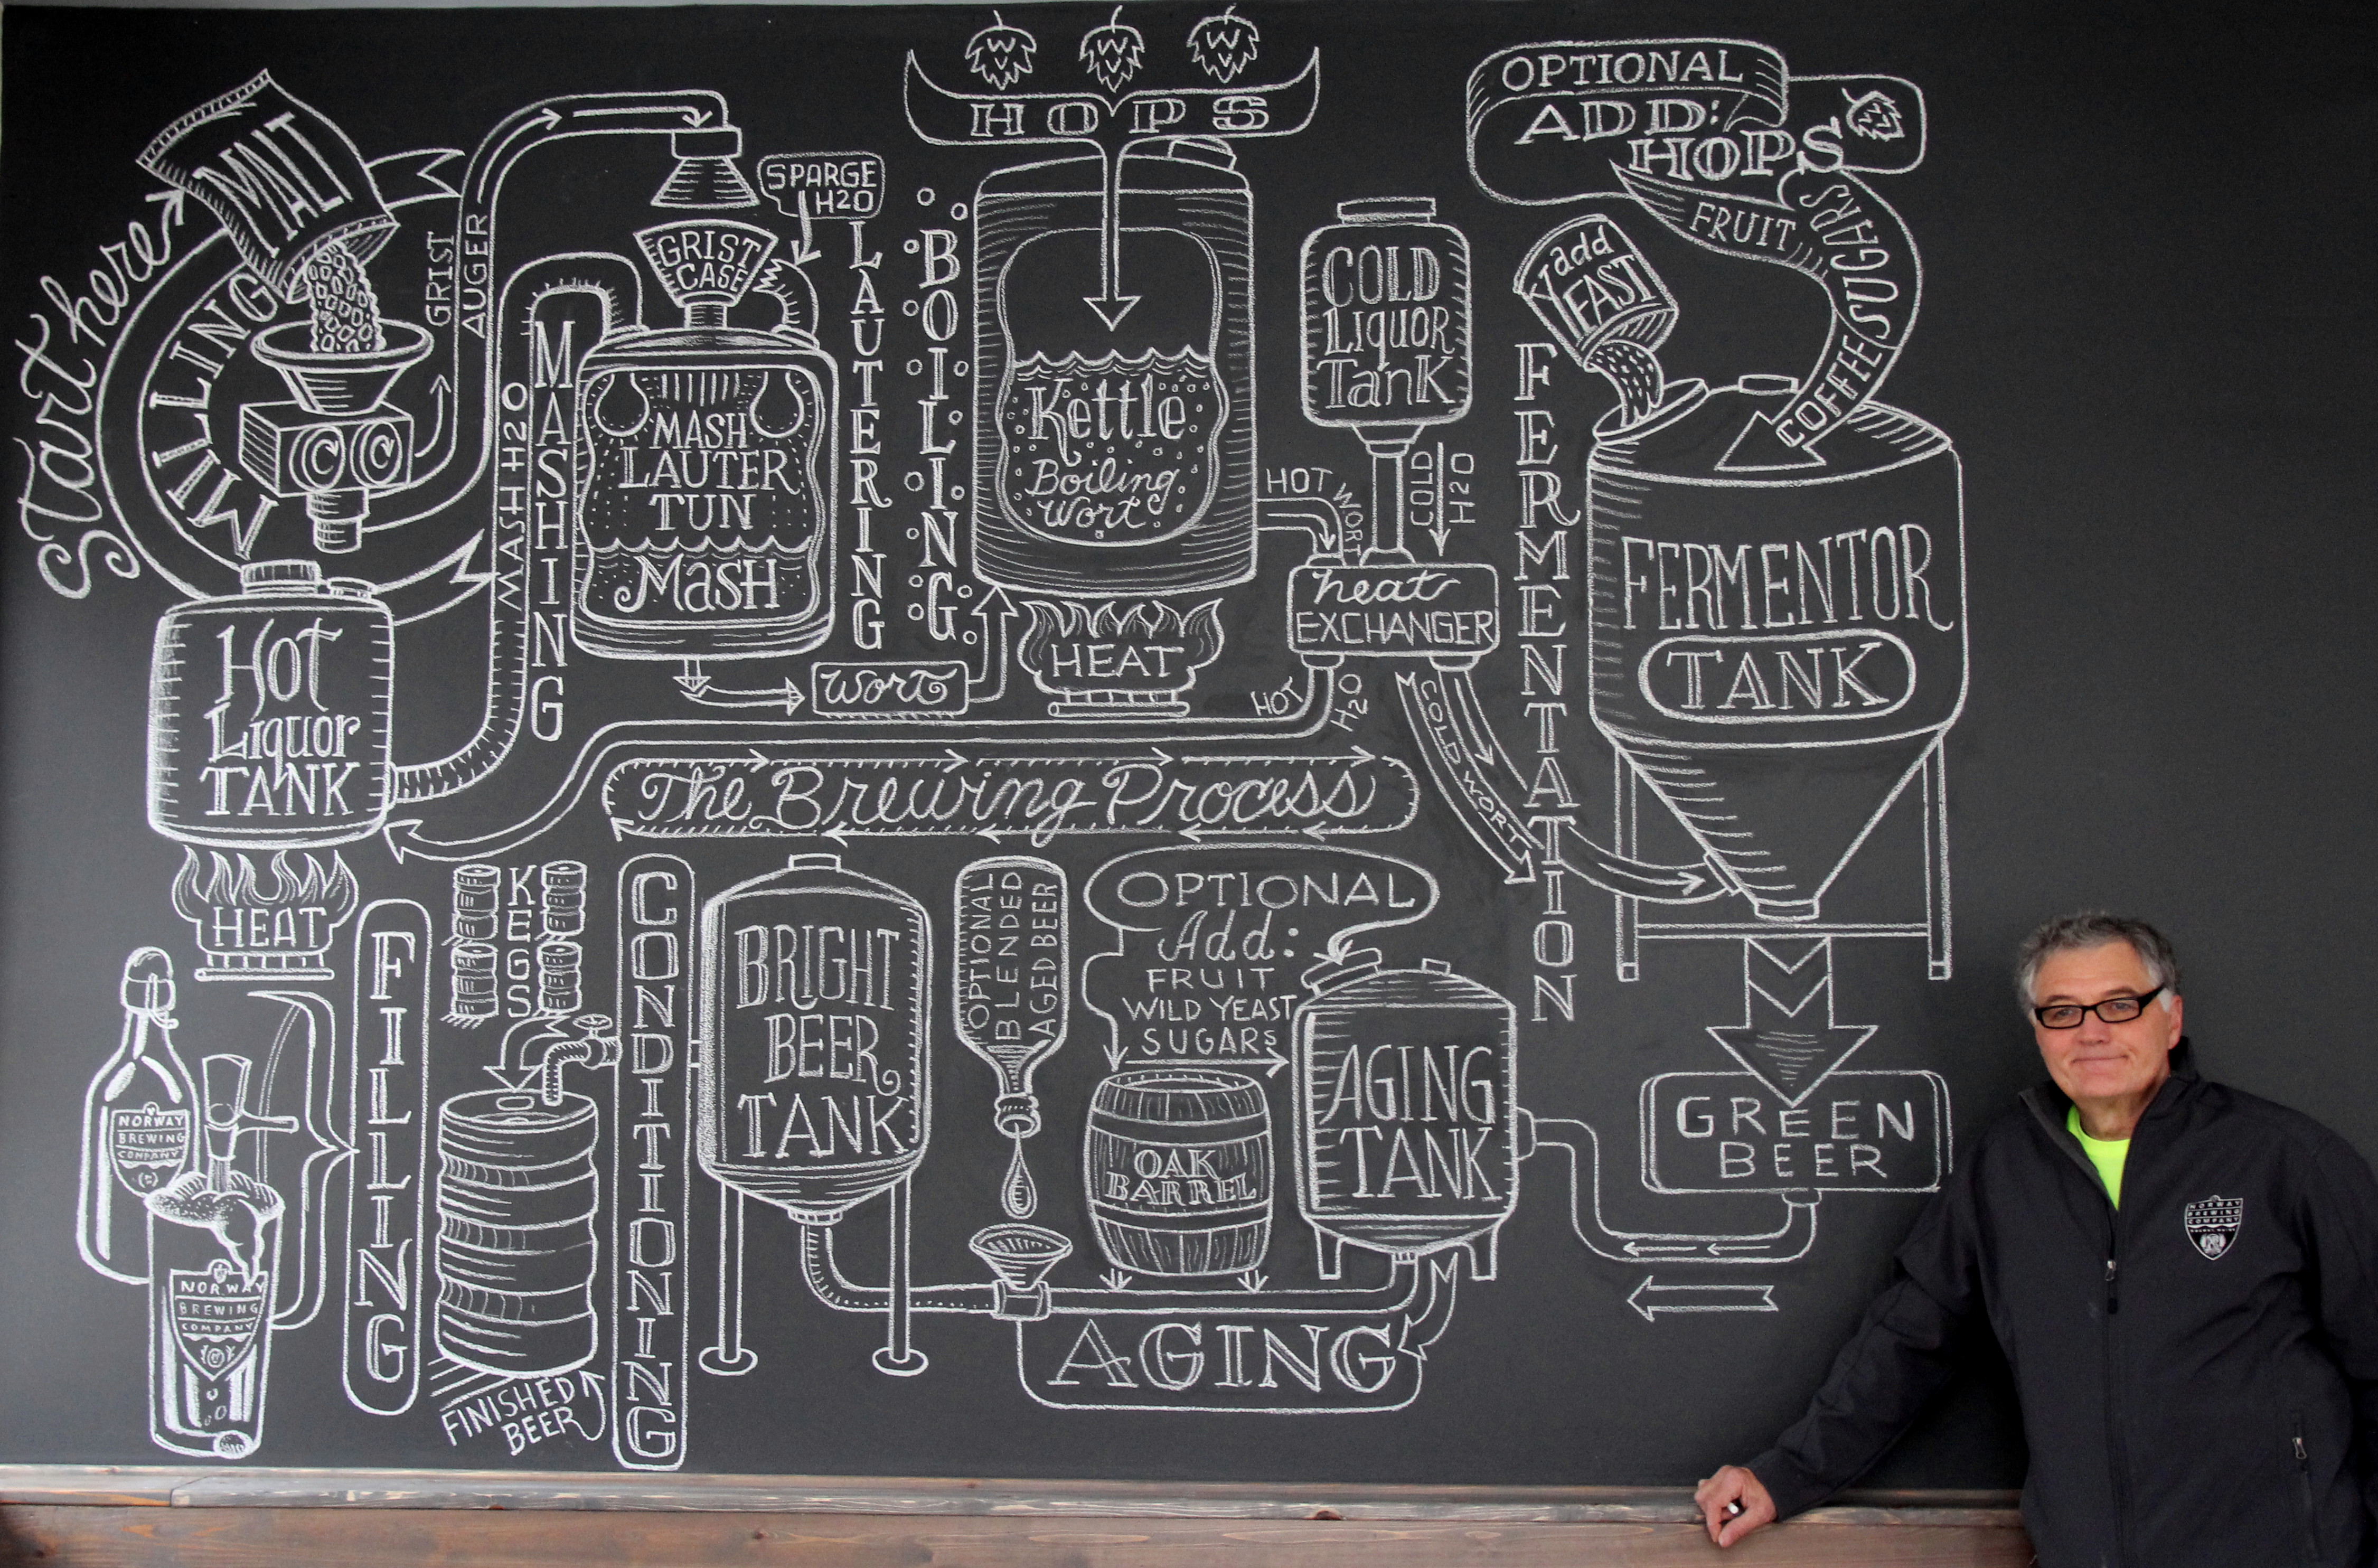 Start here
MALT
MILLING
GRIST
AUGER
GRIST
CASE
SPARGE
H2O
MASH H2O
MASHING
MASH
LAUTER
TUN
MASH
LAUTERING
Wort
HOT
LIQUOR
TANK
HEAT
BOILING
HOPS
Kettle
Boiling
Wort
HEAT
COLD
LIQUOR
TANK
HOT WORT
COLD
H2O
heat
EXCHANGER
HOT
H2O
COLD WORT
The Brewing Process
OPTIONAL
ADD:
HOPS
FRUIT
SUGARS
COFFEE
add
YEAST
FERMENTATION
FERMENTOR
TANK
GREEN
BEER
AGING
TANK
OPTIONAL
Add:
FRUIT
WILD YEAST
SUGARS
OAK
BARREL
AGING
OPTIONAL
BLENDED
AGED BEER
BRIGHT
BEER
TANK
CONDITIONING
KEGS
FINISHED
BEER
FILLING
NORWAY
BREWING
COMPANY
NORWAY
BREWING
COMPANY
NORWAY
BREWING
COMPANY